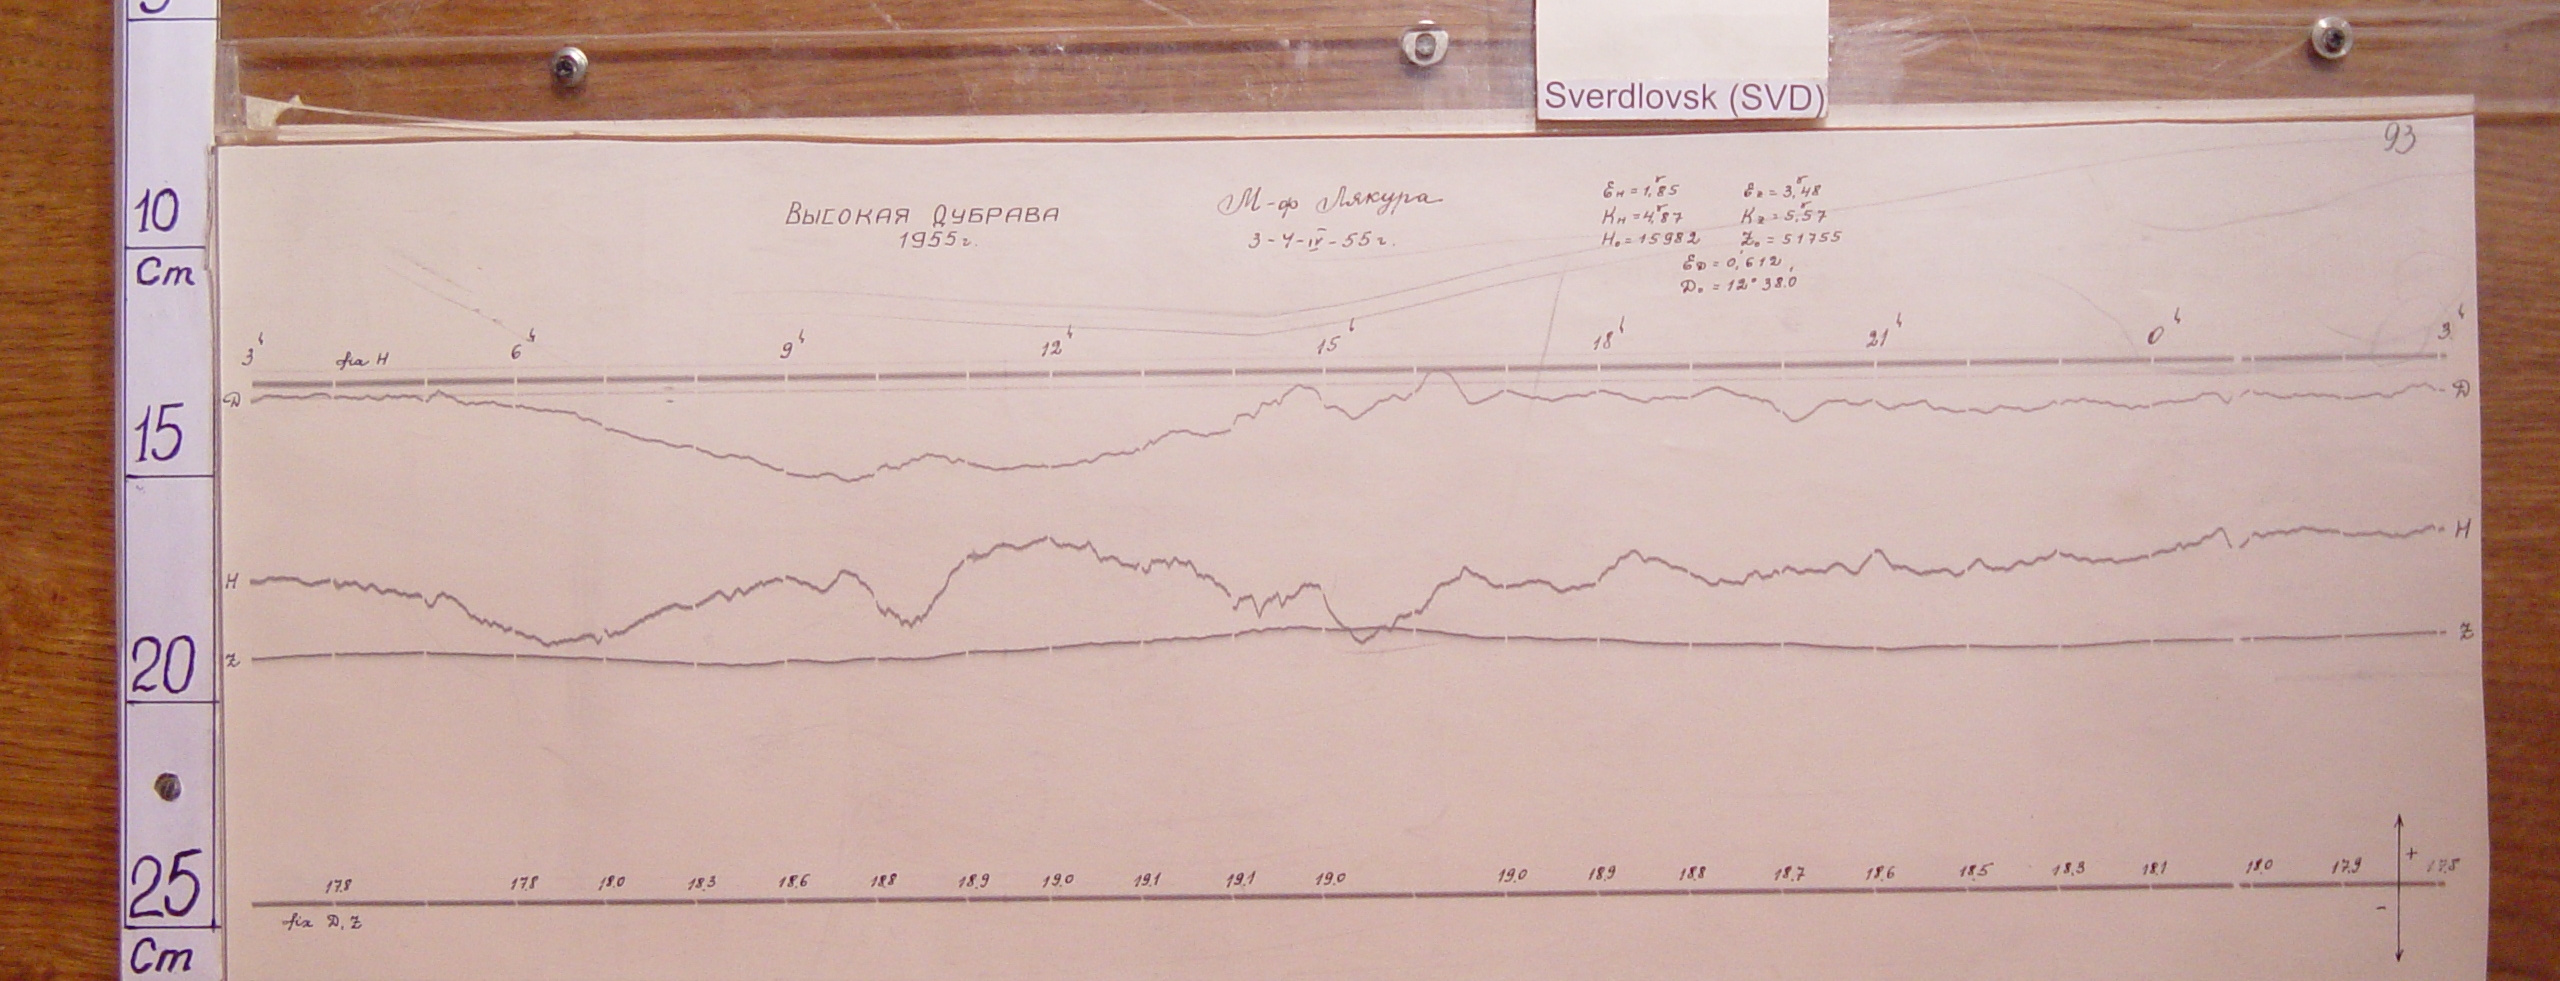 5
Sverdlovsk (SVD)
93
10
Cm
15
20
25
Cm
Высокая Дубрава
1955г.
М-ф Лякура
3-4-IV-55г.
Ен=1,γ85 Еz=3,γ48
Кн=4,γ87 Кz=5,γ57
Н₀=15982 Z₀=51755
ЕD=0,′612
D₀=12°38.′0
3ʰ 6ʰ 9ʰ 12ʰ 15ʰ 18ʰ 21ʰ 0ʰ 3ʰ
fix H
D D
H H
Z Z
17.8 17.8 18.0 18.3 18.6 18.8 18.9 19.0 19.1 19.1 19.0 19.0 18.9 18.8 18.7 18.6 18.5 18.3 18.1 18.0 17.9 17.8
+
-
fix D, Z